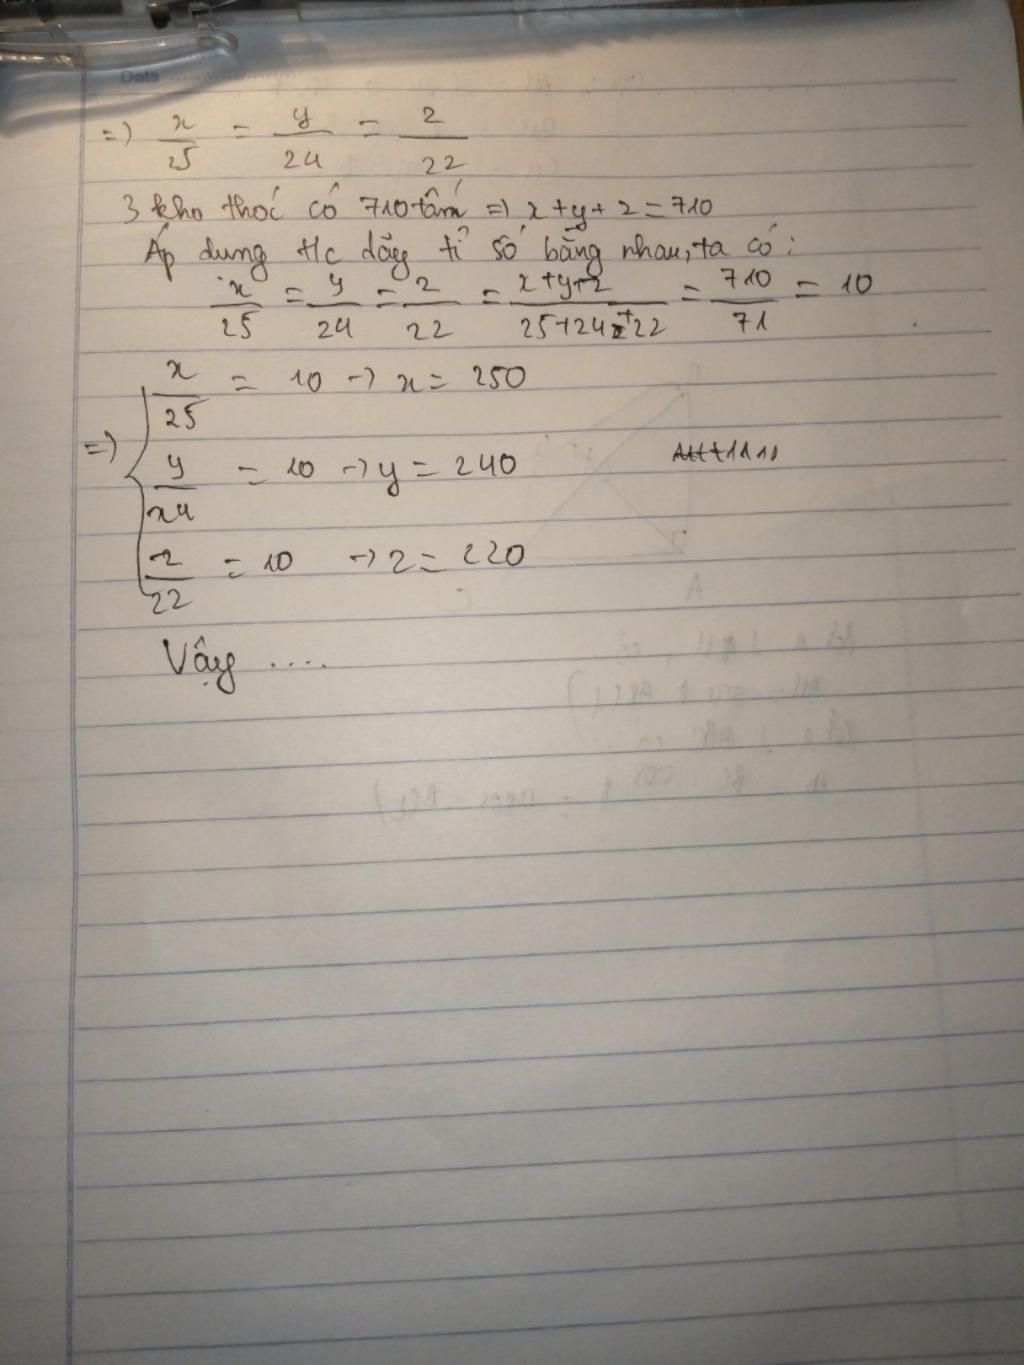 Date
=) x/25 = y/24 = z/22
3 kho thóc có 710 tấn => x+y+z=710
Áp dung t/c dãy tỉ số bằng nhau, ta có:
x/25 = y/24 = z/22 = x+y+z/25+24+22 = 710/71 = 10
x/25 = 10 -> x = 250
=) y/24 = 10 -> y = 240
z/22 = 10 -> z = 220
Vậy ....